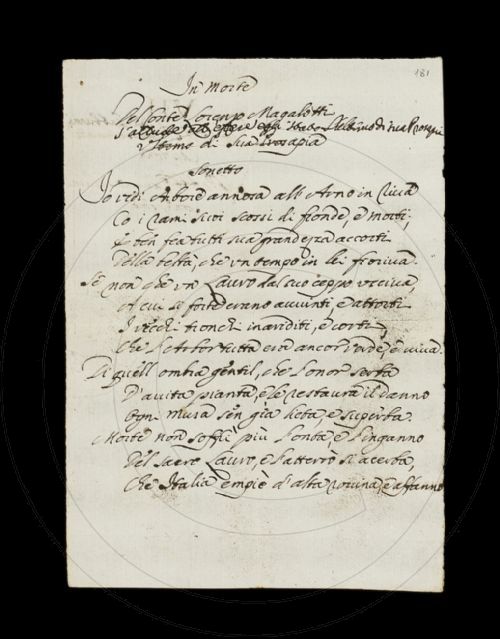 181
In Morte
Del Conte Lorenzo Magalotti
s'allude all' essere egli stato
ultimo di sua Prosapia
Sonetto
Io vidi Arbore annosa all' Arno in riva
Co i rami suoi scossi di fronde, e morti;
E ben fea tutti sua grandezza accorti
Della beltà, che un tempo in lei fioriva.
Se non che un Lauro dal suo ceppo usciva,
A cui sì forte erano avvinti, e attorti
I vecchi tronchi inariditi, e corti,
Che l'Arbor tutta era ancor verde, e viva.
Di quell' ombra gentil, che l'onor serba
D'avita pianta, e le restaura il danno
Ogni Musa sen gia lieta, e superba.
Morte non soffrì più l'onta, e l'inganno
Del sacro Lauro, e l'atterrò sì acerba,
Che Italia empie d'alta rovina, e affanno